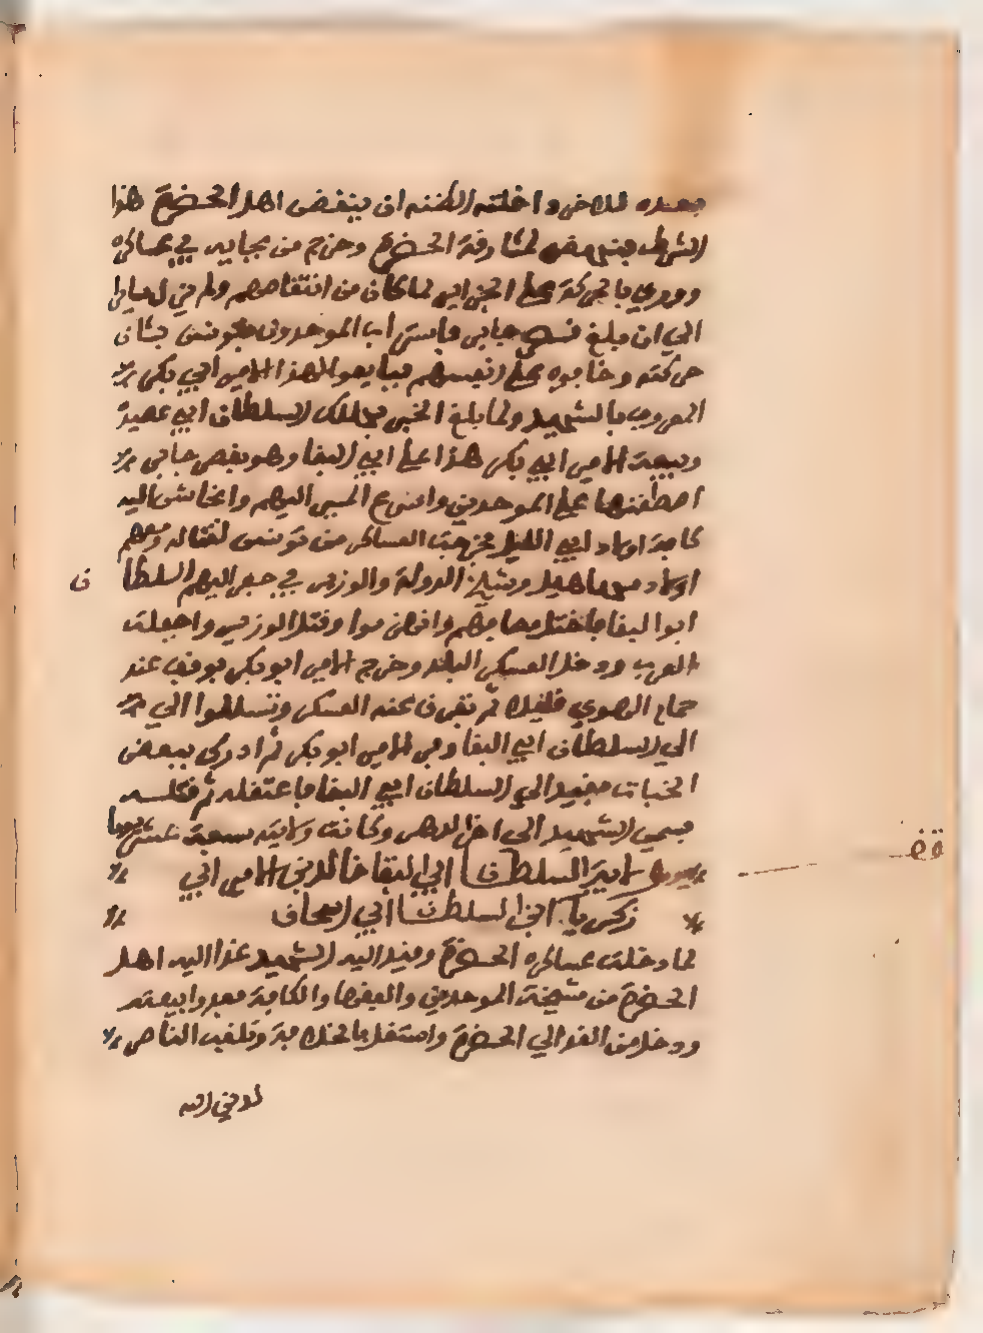 بعده للاخر واخلته الظنه ان ينقض اهل الحضرة هذا
الشرط فنهض لمشارفة الحضرة وخرج من بجايه في عساكره
وورى بالحركة على الجزاير لما كان من انتقاضهم
الى ان بلغ قصر جابر فاستراب الموحدون بتونس بشان
حركته وخافوه على انفسهم فبايعوا لهذا الامير ابي بكر
المعروف بالشهيد ولما بلغ الخبر بهلاك السلطان ابي عصيدة
وبيعة الامير ابي بكر هذا على ابي البقا وهو بقصر جابر
اضطغنها على الموحدين واسرع السير اليهم وانحاش اليه
كافة اولاد ابي الليل فخرجت العساكر من تونس لقتاله ومعهم
اولاد مهلهل ومشيخة الدولة والوزير في حبر اليهم السلطان
ابو البقا فاختل مصافهم وانهزموا وقتل الوزير واجفلت
العرب ودخل العسكر البلد وخرج الامير ابو بكر فوقف عند
قليلا ثم تفرق عنه العسكر وتسللوا الى
الى السلطان ابي البقا وفر الامير ابو بكر ثم ادرك ببعض
الجنات فقيد الى السلطان ابي البقا فاعتقله ثم قتله
فسمي الشهيد الى اخر الدهر وكانت ولايته سبعة عشر يوما
قف
امير السلطان ابي البقا خالد بن الامير ابي
زكرياء ابن السلطان ابي اسحاق
لما دخلت عساكره الحضرة وقيد اليه الشهيد غدا اليه اهل
الحضرة من مشيخة الموحدين والفقها والكافة فعقدوا بيعته
ودخل من الغد الى الحضرة واستقل بالخلافة وتلقب الناصر
لدين الله